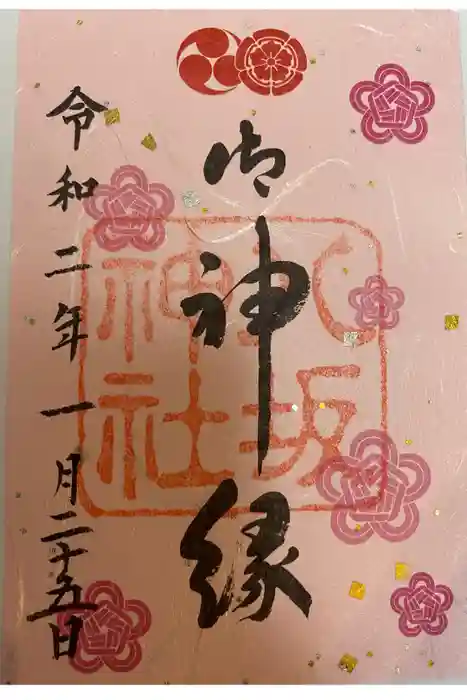 御神縁
令和二年一月二十五日
八坂
神社